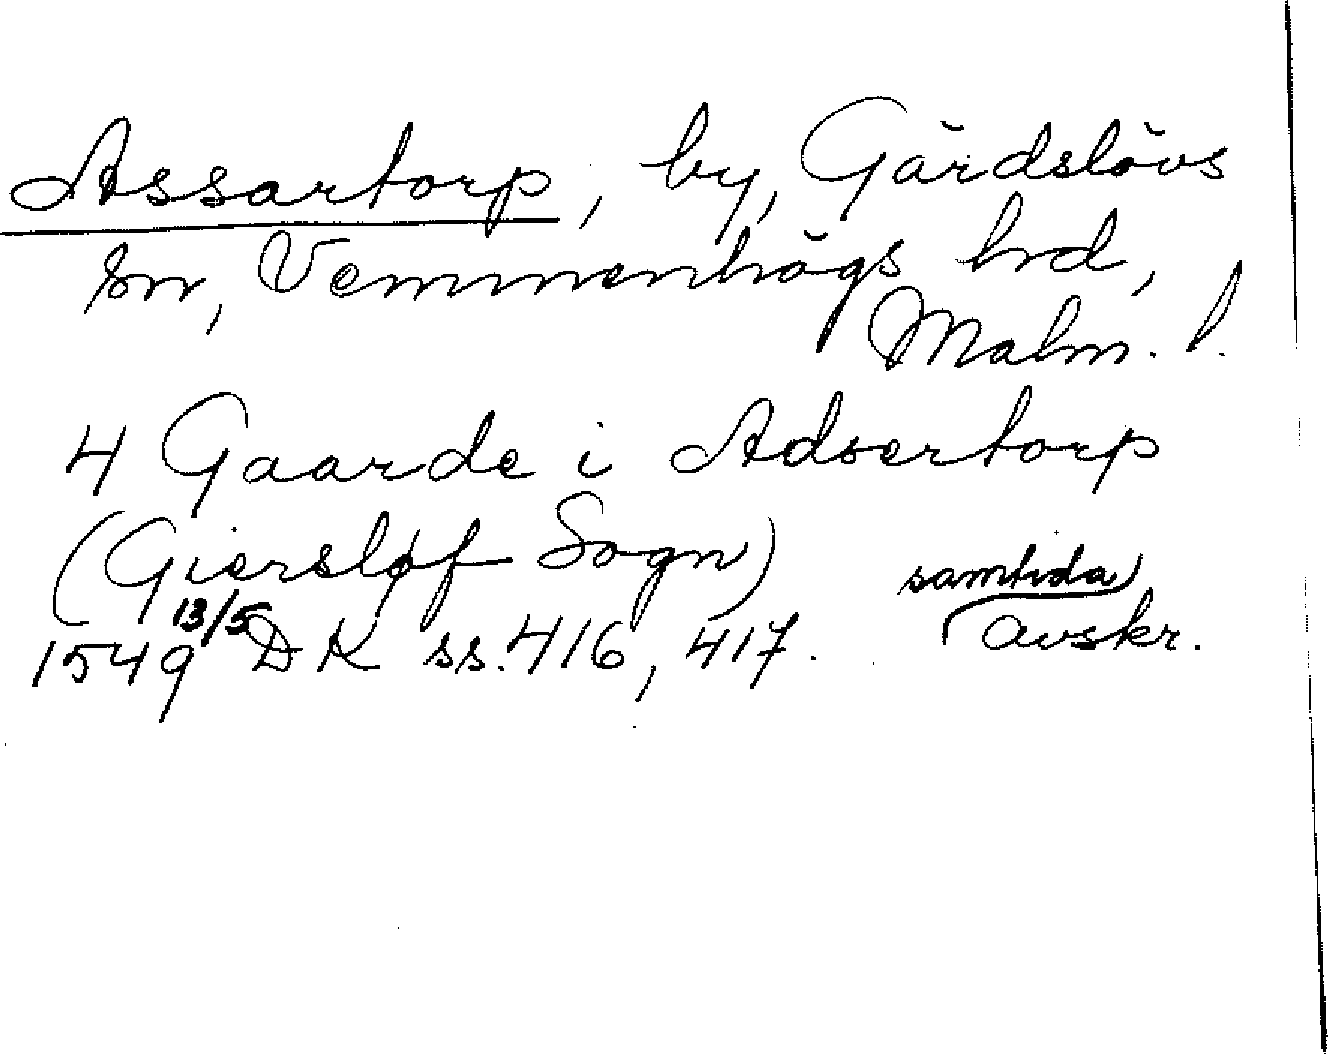 Assartorp, by, Gärdslövs
sn, Vemmenhögs hd,
Malm. l.
4 Gaarde i Adsertorp
(Giersløf Sogn)
1549 13/5 DK ss. 416, 417. samtida avskr.